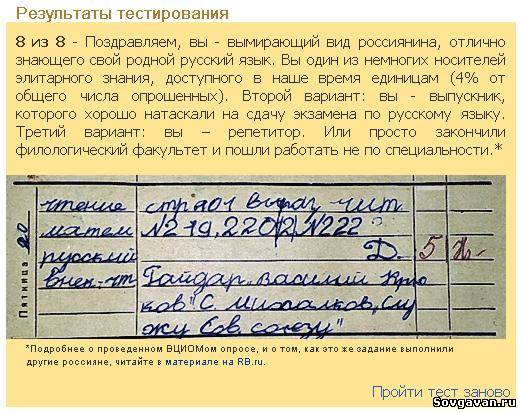 Результаты тестирования
8 из 8 - Поздравляем, вы - вымирающий вид россиянина, отлично
знающего свой родной русский язык. Вы один из немногих носителей
элитарного знания, доступного в наше время единицам (4% от
общего числа опрошенных). Второй вариант: вы - выпускник,
которого хорошо натаскали на сдачу экзамена по русскому языку.
Третий вариант: вы – репетитор. Или просто закончили
филологический факультет и пошли работать не по специальности.*
Пятница 20
чтение стр 201 выраз. чит.
матем №219, 220(2), №222
русский Д. 5
внек. чт Гайдар „Василий Крю
ков" С. Михалков „Слу
жу Сов. союзу"
*Подробнее о проведенном ВЦИОМом опросе, и о том, как это же задание выполнили
другие россияне, читайте в материале на RB.ru.
Пройти тест заново
Sovgavan.ru